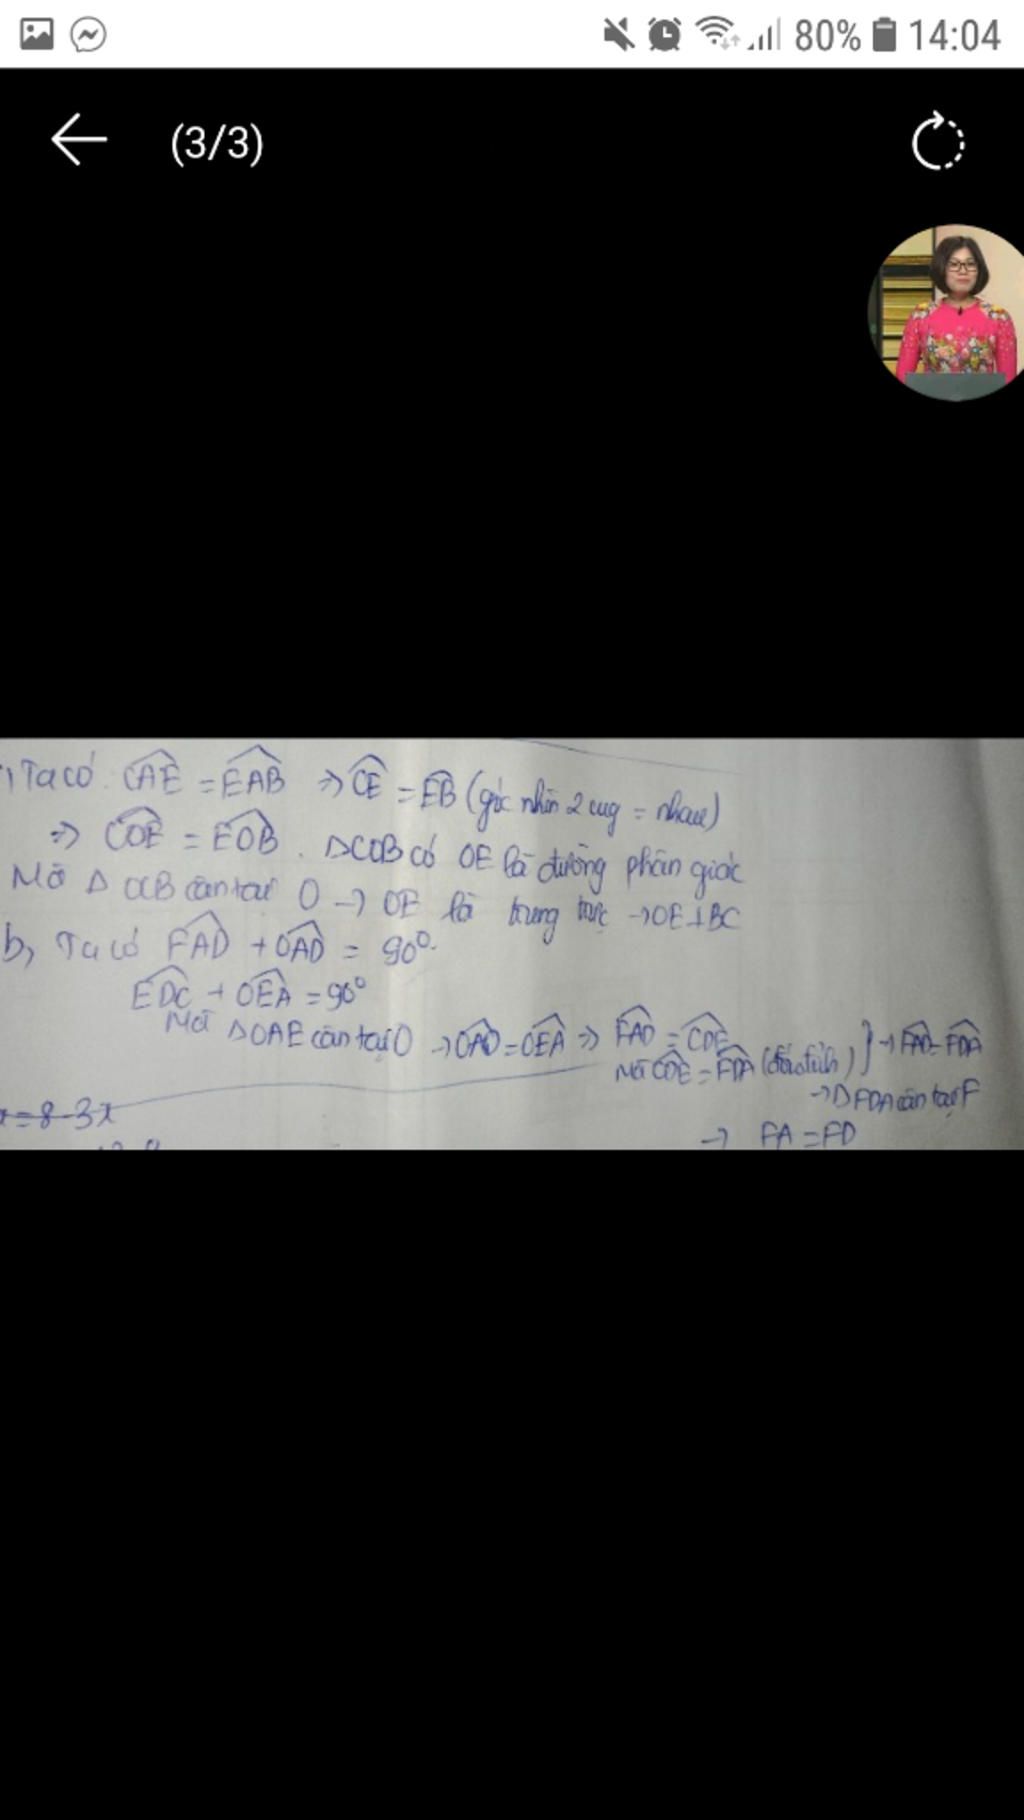 80% 14:04
(3/3)
Ta có CAE = EAB => CE = EB (góc nhìn 2 cung = nhau)
=> COE = EOB . ΔCOB có OE là đường phân giác
Mà Δ OCB cân tại O → OE là trung trực → OE⊥BC
b, Ta có FAD + OAD = 90°.
EDC + OEA = 90°
Mà ΔOAE cân tại O → OAD = OEA => FAD = CDE
Mà CDE = FDA (đối đỉnh) } → FAD = FDA
→ Δ FDA cân tại F
→ FA = FD
= 8 - 3x